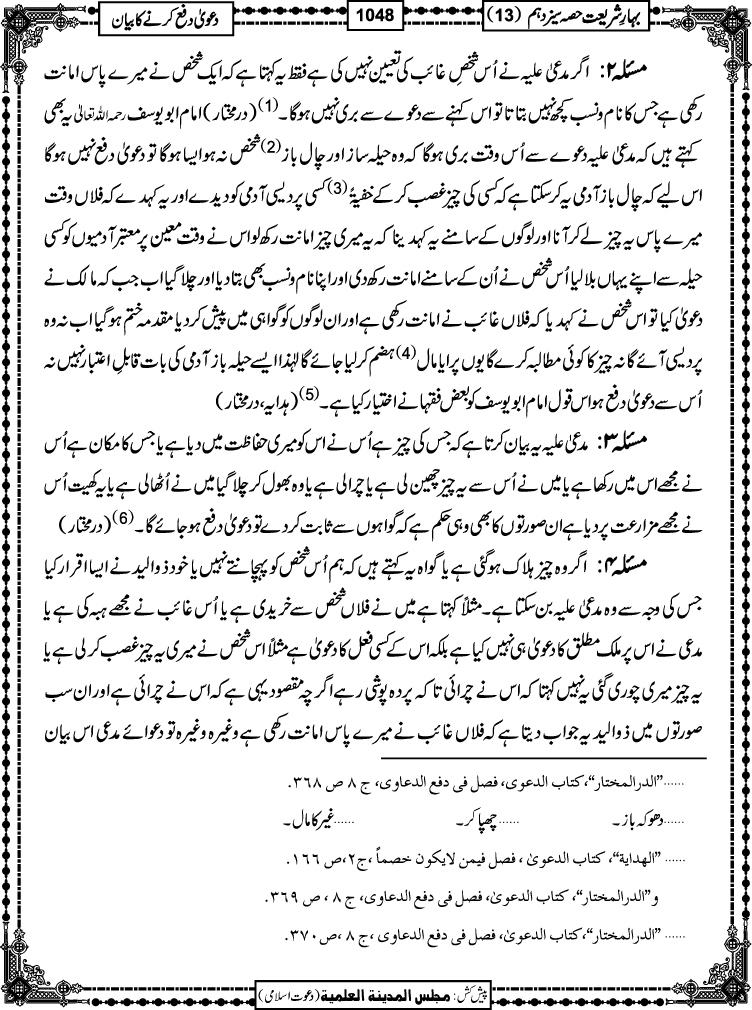 بہارِ شریعت حصہ سیزدہم (13)
1048
دعویٰ دفع کرنے کا بیان
مسئلہ ۲: اگر مدعیٰ علیہ نے اُس شخصِ غائب کی تعیین نہیں کی ہے فقط یہ کہتا ہے کہ ایک شخص نے میرے پاس امانت
رکھی ہے جس کا نام و نسب کچھ نہیں بتاتا تو اس کہنے سے دعوے سے بری نہیں ہوگا۔(1) (درمختار) امام ابو یوسف رحمہ اللہ تعالیٰ یہ بھی
کہتے ہیں کہ مدعیٰ علیہ دعوے سے اُس وقت بری ہوگا کہ وہ حیلہ ساز اور چال باز(2) شخص نہ ہو ایسا ہوگا تو دعویٰ دفع نہیں ہوگا
اس لیے کہ چال باز آدمی یہ کر سکتا ہے کہ کسی کی چیز غصب کر کے خفیۃً(3) کسی پردیسی آدمی کو دیدے اور یہ کہدے کہ فلاں وقت
میرے پاس یہ چیز لے کر آنا اور لوگوں کے سامنے یہ کہدینا کہ یہ میری چیز امانت رکھ لو اس نے وقت معین پر معتبر آدمیوں کو کسی
حیلہ سے اپنے یہاں بلا لیا اُس شخص نے اُن کے سامنے امانت رکھ دی اور اپنا نام و نسب بھی بتا دیا اور چلا گیا اب جب کہ مالک نے
دعویٰ کیا تو اس شخص نے کہد یا کہ فلاں غائب نے امانت رکھی ہے اور ان لوگوں کو گواہی میں پیش کر دیا مقدمہ ختم ہوگیا اب نہ وہ
پردیسی آئے گا نہ چیز کا کوئی مطالبہ کرے گا یوں پرایا مال(4) ہضم کر لیا جائے گا لہٰذا ایسے حیلہ باز آدمی کی بات قابلِ اعتبار نہیں نہ
اُس سے دعویٰ دفع ہو اس قول امام ابو یوسف کو بعض فقہا نے اختیار کیا ہے۔(5) (ہدایہ، درمختار)
مسئلہ ۳: مدعیٰ علیہ یہ بیان کرتا ہے کہ جس کی چیز ہے اُس نے اس کو میری حفاظت میں دیا ہے یا جس کا مکان ہے اُس
نے مجھے اس میں رکھا ہے یا میں نے اُس سے یہ چیز چھین لی ہے یا چرالی ہے یا وہ بھول کر چلا گیا میں نے اُٹھالی ہے یا یہ کھیت اُس
نے مجھے مزارعت پر دیا ہے ان صورتوں کا بھی وہی حکم ہے کہ گواہوں سے ثابت کر دے تو دعویٰ دفع ہو جائے گا۔(6) (درمختار)
مسئلہ ۴: اگر وہ چیز ہلاک ہوگئی ہے یا گواہ یہ کہتے ہیں کہ ہم اُس شخص کو پہچانتے نہیں یا خود ذوالید نے ایسا اقرار کیا
جس کی وجہ سے وہ مدعیٰ علیہ بن سکتا ہے۔ مثلاً کہتا ہے میں نے فلاں شخص سے خریدی ہے یا اُس غائب نے مجھے ہبہ کی ہے یا
مدعی نے اس پر ملک مطلق کا دعویٰ ہی نہیں کیا ہے بلکہ اس کے کسی فعل کا دعویٰ ہے مثلاً اس شخص نے میری یہ چیز غصب کر لی ہے یا
یہ چیز میری چوری گئی یہ نہیں کہتا کہ اس نے چرائی تا کہ پردہ پوشی رہے اگرچہ مقصود یہی ہے کہ اس نے چرائی ہے اور ان سب
صورتوں میں ذوالید یہ جواب دیتا ہے کہ فلاں غائب نے میرے پاس امانت رکھی ہے وغیرہ وغیرہ تو دعوائے مدعی اس بیان
......"الدرالمختار"، کتاب الدعوی، فصل فی دفع الدعاوی، ج ۸ ص ۳۶۸.
......دھوکہ باز۔ ......چھپا کر۔ ......غیر کا مال۔
...... "الھدایۃ"، کتاب الدعویٰ، فصل فیمن لایکون خصماً، ج۲، ص ۱۶۶.
و"الدرالمختار"، کتاب الدعویٰ، فصل فی دفع الدعاوی، ج ۸، ص ۳۶۹.
...... "الدرالمختار"، کتاب الدعویٰ، فصل فی دفع الدعاوی، ج ۸، ص ۳۷۰.
پیش کش: مجلس المدینۃ العلمیۃ (دعوت اسلامی)